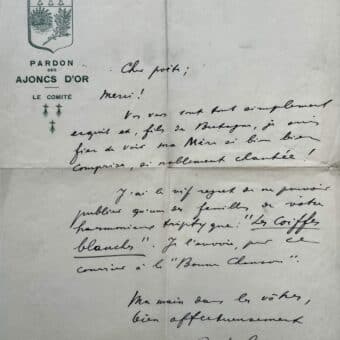 PARDON
DES
AJONCS D'OR
LE COMITÉ
Cher poète,
Merci !
Vos vers sont tout simplement
exquis et, fils de Bretagne, je suis
fier de voir ma Mère si bien
comprise, si noblement chantée !
J'ai le vif regret de ne pouvoir
publier qu'un des familles de votre
harmonieux triptyque : "Les Coiffes
blanches". Je l'envoie, par ce
courrier à la "Bonne Chanson".
Ma main dans les vôtres,
bien affectueusement